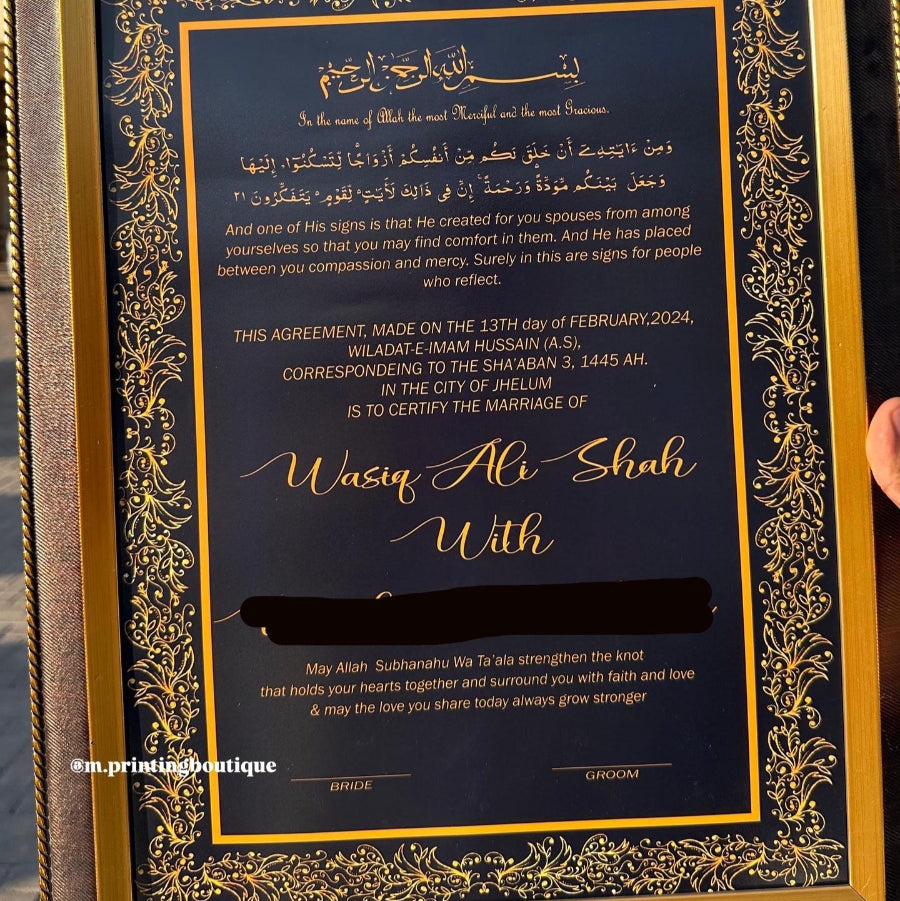 بِسْمِ اللهِ الرَّحْمٰنِ الرَّحِيْمِ
In the name of Allah the most Merciful and the most Gracious.
وَمِنْ ءَايَـٰتِهِۦٓ أَنْ خَلَقَ لَكُم مِّنْ أَنفُسِكُمْ أَزْوَٰجًۭا لِّتَسْكُنُوٓا۟ إِلَيْهَا
وَجَعَلَ بَيْنَكُم مَّوَدَّةًۭ وَرَحْمَةً ۚ إِنَّ فِى ذَٰلِكَ لَـَٔايَـٰتٍۢ لِّقَوْمٍۢ يَتَفَكَّرُونَ ٢١
And one of His signs is that He created for you spouses from among
yourselves so that you may find comfort in them. And He has placed
between you compassion and mercy. Surely in this are signs for people
who reflect.
THIS AGREEMENT, MADE ON THE 13TH day of FEBRUARY,2024,
WILADAT-E-IMAM HUSSAIN (A.S),
CORRESPONDEING TO THE SHA'ABAN 3, 1445 AH.
IN THE CITY OF JHELUM
IS TO CERTIFY THE MARRIAGE OF
Wasiq Ali Shah
With
May Allah Subhanahu Wa Ta'ala strengthen the knot
that holds your hearts together and surround you with faith and love
& may the love you share today always grow stronger
@m.printingboutique
BRIDE
GROOM